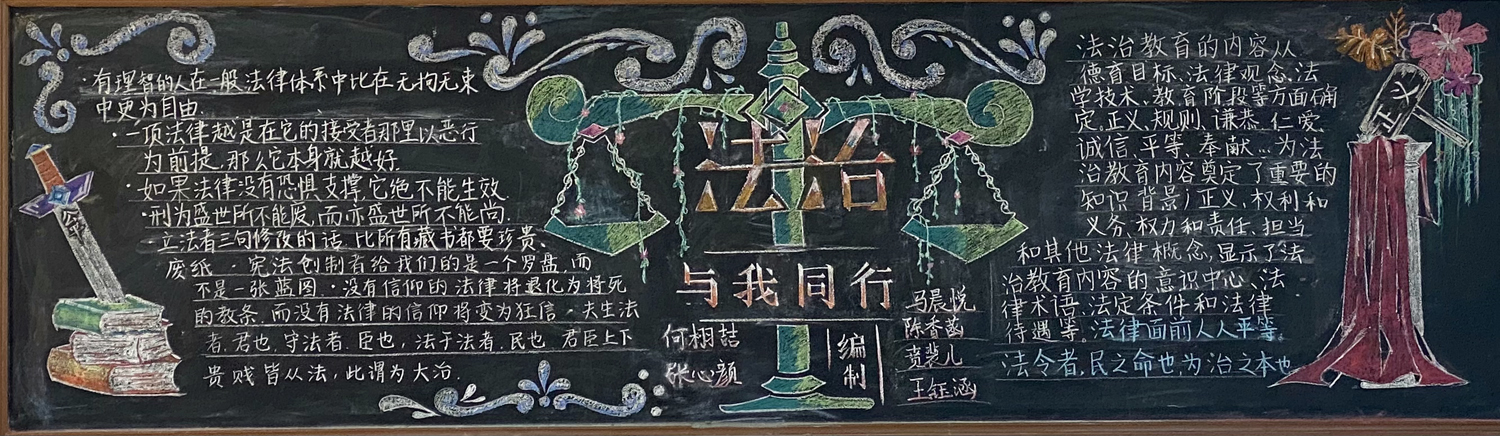 ·有理智的人在一般法律体系中比在无拘无束
中更为自由.
·一项法律越是在它的接受者那里以恶行
为前提,那么它本身就越好.
·如果法律没有恐惧支撑,它绝不能生效.
·刑为盛世所不能废,而亦盛世所不能尚.
·立法者三句修改的话,比所有藏书都要珍贵、
废纸.·宪法创制者给我们的是一个罗盘,而
不是一张蓝图.·没有信仰的法律将退化为将死
的教条,而没有法律的信仰将变为狂信.·夫生法
者,君也,守法者,臣也,法于法者,民也,君臣上下
贵贱皆从法,此谓为大治.
法治
与我同行
何栩喆
张心颜
编制
马晨悦
陈香菡
贲裴儿
王钰涵
法治教育的内容从
德育目标、法律观念、法
学技术、教育阶段等方面确
定。正义、规则、谦恭、仁爱、
诚信、平等、奉献...为法
治教育内容奠定了重要的
知识背景;正义、权利和
义务、权力和责任、担当
和其他法律概念,显示了法
治教育内容的意识中心、法
律术语、法定条件和法律
待遇等。法律面前人人平等。
法令者,民之命也,为治之本也
正义